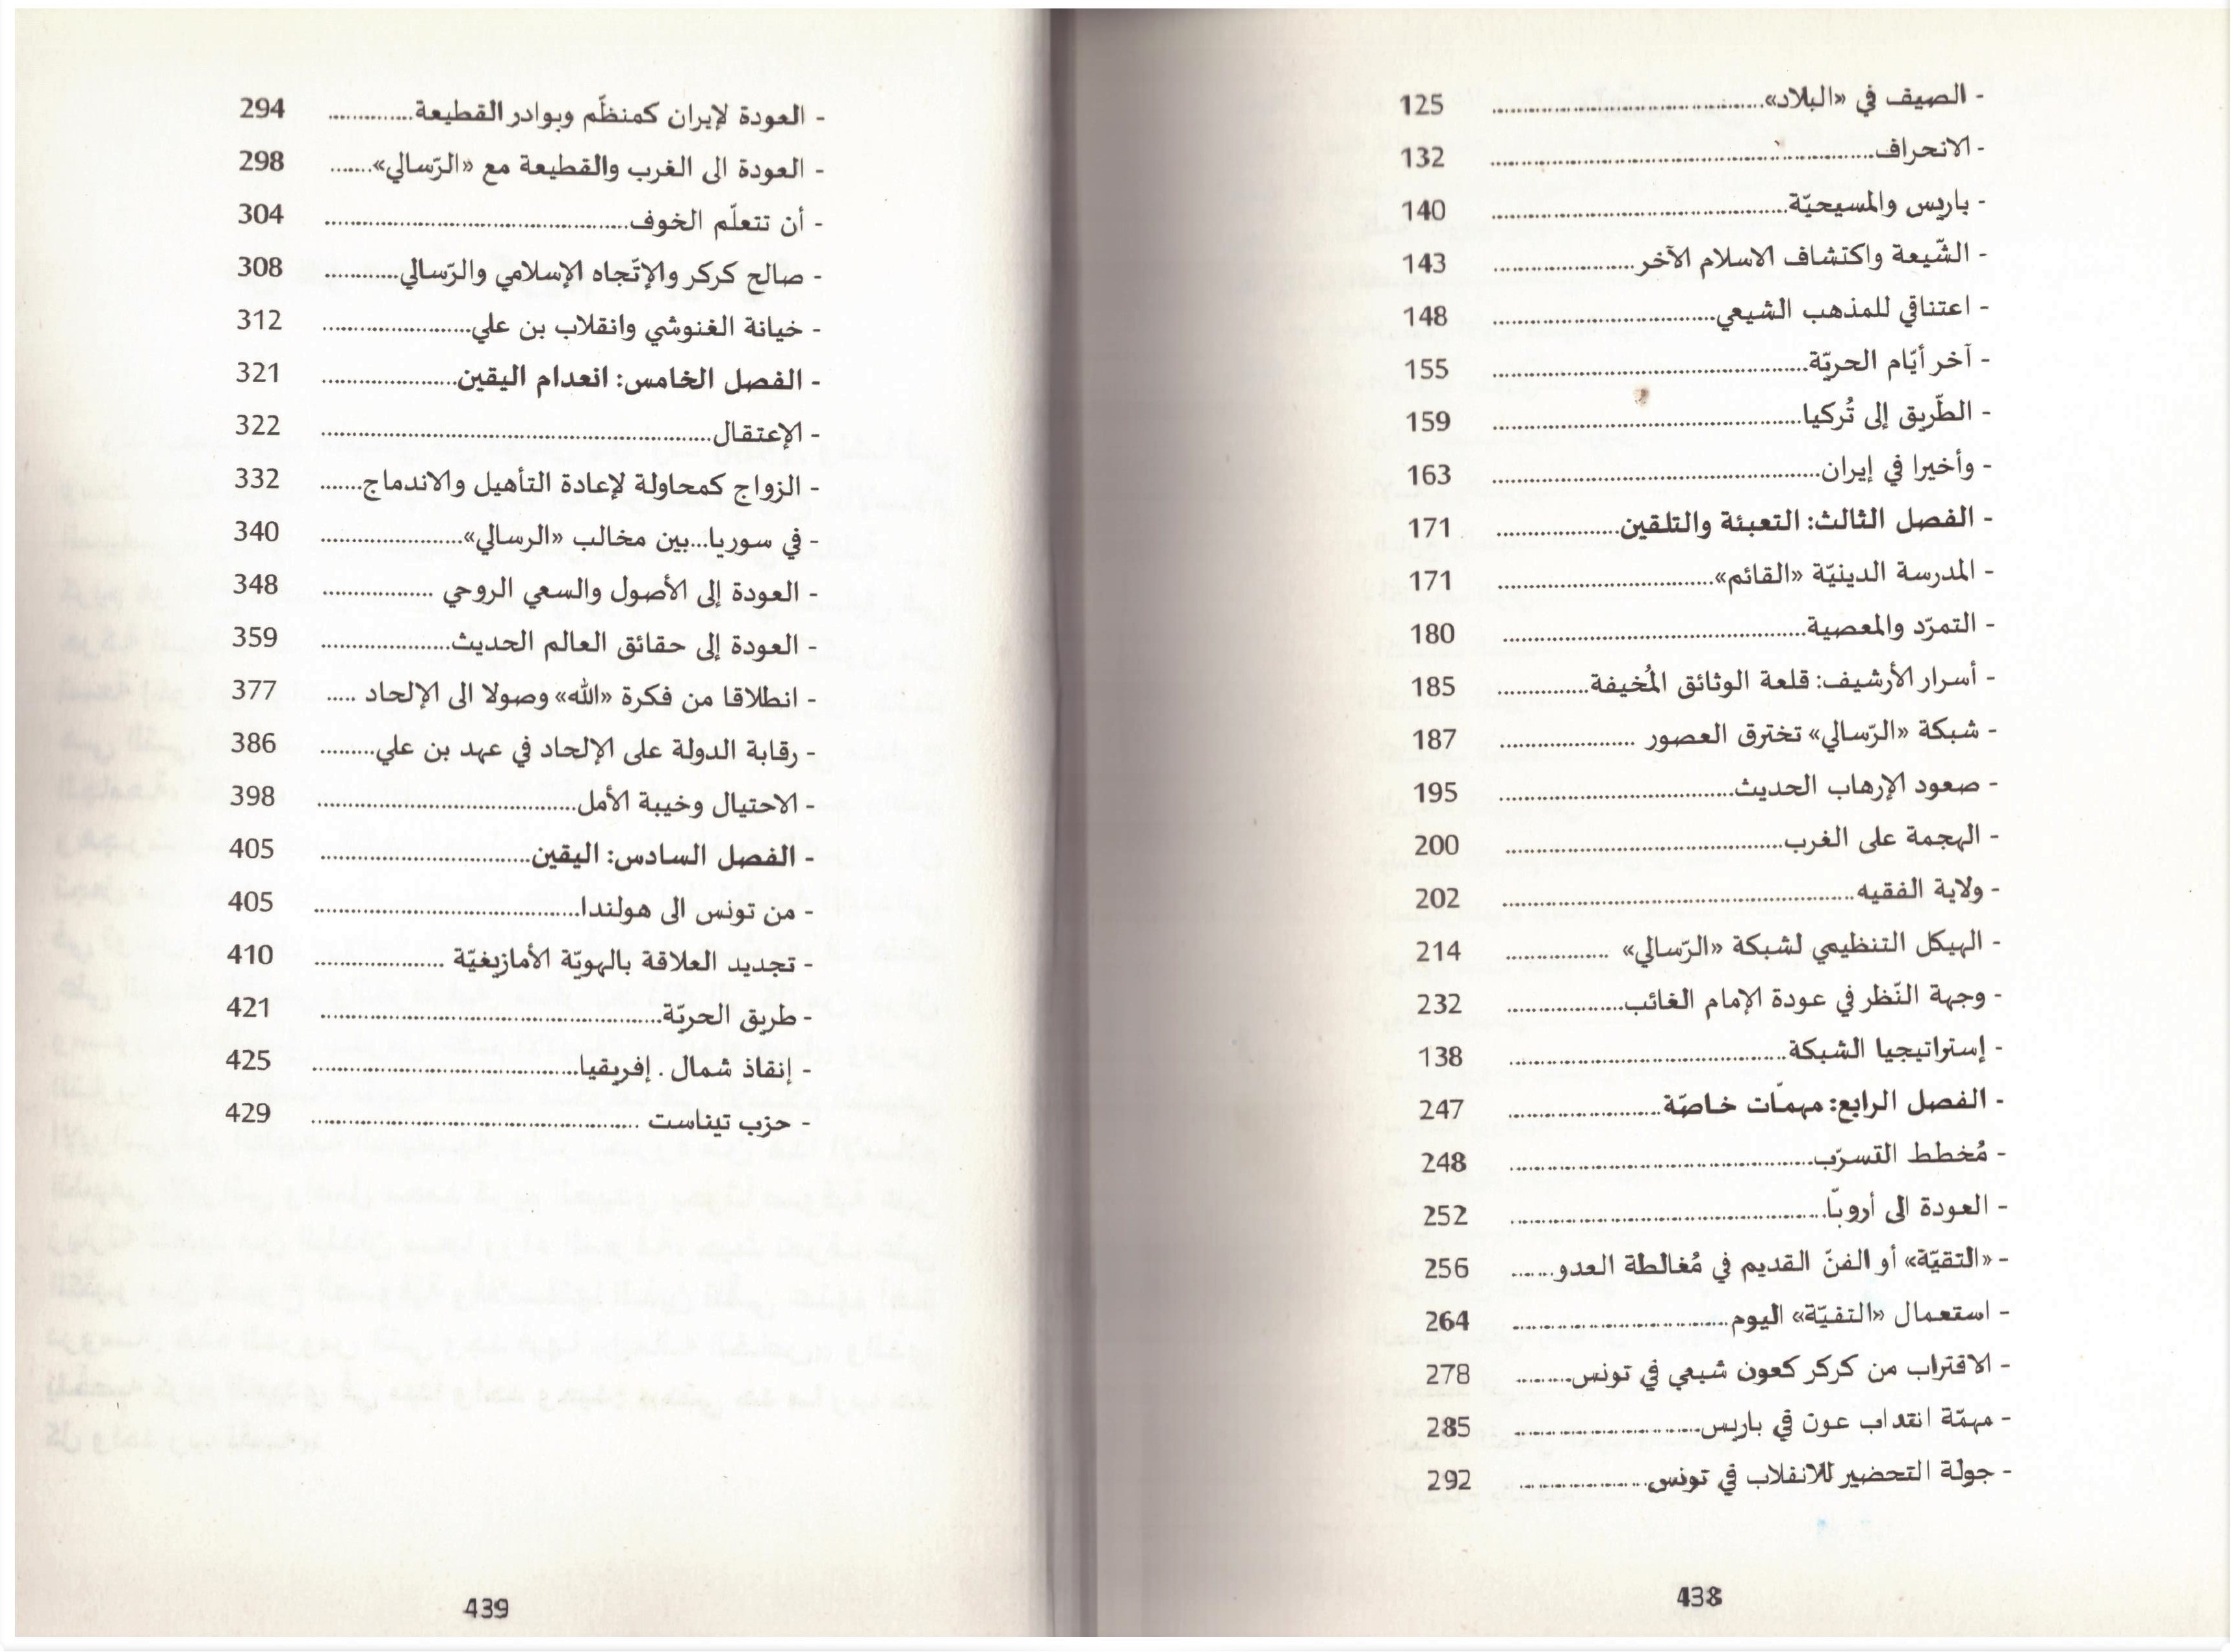 - الصيف في «البلاد»........................................ 125
- الانحراف........................................ 132
- باريس والمسيحيّة........................................ 140
- الشّيعة واكتشاف الاسلام الآخر........................................ 143
- اعتناقي للمذهب الشيعي........................................ 148
- آخر أيّام الحريّة........................................ 155
- الطّريق إلى تُركيا........................................ 159
- وأخيرا في إيران........................................ 163
- الفصل الثالث: التعبئة والتلقين.................... 171
- المدرسة الدينيّة «القائم»........................................ 171
- التمرّد والمعصية........................................ 180
- أسرار الأرشيف: قلعة الوثائق المُخيفة.................... 185
- شبكة «الرّسالي» تخترق العصور .................... 187
- صعود الإرهاب الحديث........................................ 195
- الهجمة على الغرب........................................ 200
- ولاية الفقيه........................................ 202
- الهيكل التنظيمي لشبكة «الرّسالي» ................ 214
- وجهة النّظر في عودة الإمام الغائب.................... 232
- إستراتيجيا الشبكة........................................ 138
- الفصل الرابع: مهمّات خاصّة.................... 247
- مُخطط التسرّب........................................ 248
- العودة الى أروبّا........................................ 252
- «التقيّة» أو الفنّ القديم في مُغالطة العدو....... 256
- استعمال «التقيّة» اليوم........................................ 264
- الاقتراب من كركر كعون شيعي في تونس......... 278
- مهمّة انتداب عون في باريس.................... 285
- جولة التحضير للانقلاب في تونس.................... 292
438
- العودة لإيران كمنظّم وبوادر القطيعة.............. 294
- العودة الى الغرب والقطيعة مع «الرّسالي»....... 298
- أن تتعلّم الخوف........................................ 304
- صالح كركر والإتّجاه الإسلامي والرّسالي............ 308
- خيانة الغنوشي وانقلاب بن علي.................... 312
- الفصل الخامس: انعدام اليقين.................... 321
- الإعتقال........................................ 322
- الزواج كمحاولة لإعادة التأهيل والاندماج....... 332
- في سوريا...بين مخالب «الرسالي».................... 340
- العودة إلى الأصول والسعي الروحي ................ 348
- العودة إلى حقائق العالم الحديث.................... 359
- انطلاقا من فكرة «الله» وصولا الى الإلحاد ..... 377
- رقابة الدولة على الإلحاد في عهد بن علي......... 386
- الاحتيال وخيبة الأمل........................................ 398
- الفصل السادس: اليقين.............................. 405
- من تونس الى هولندا........................................ 405
- تجديد العلاقة بالهويّة الأمازيغيّة .................... 410
- طريق الحريّة........................................ 421
- إنقاذ شمال . إفريقيا........................................ 425
- حزب تيناست ........................................ 429
439